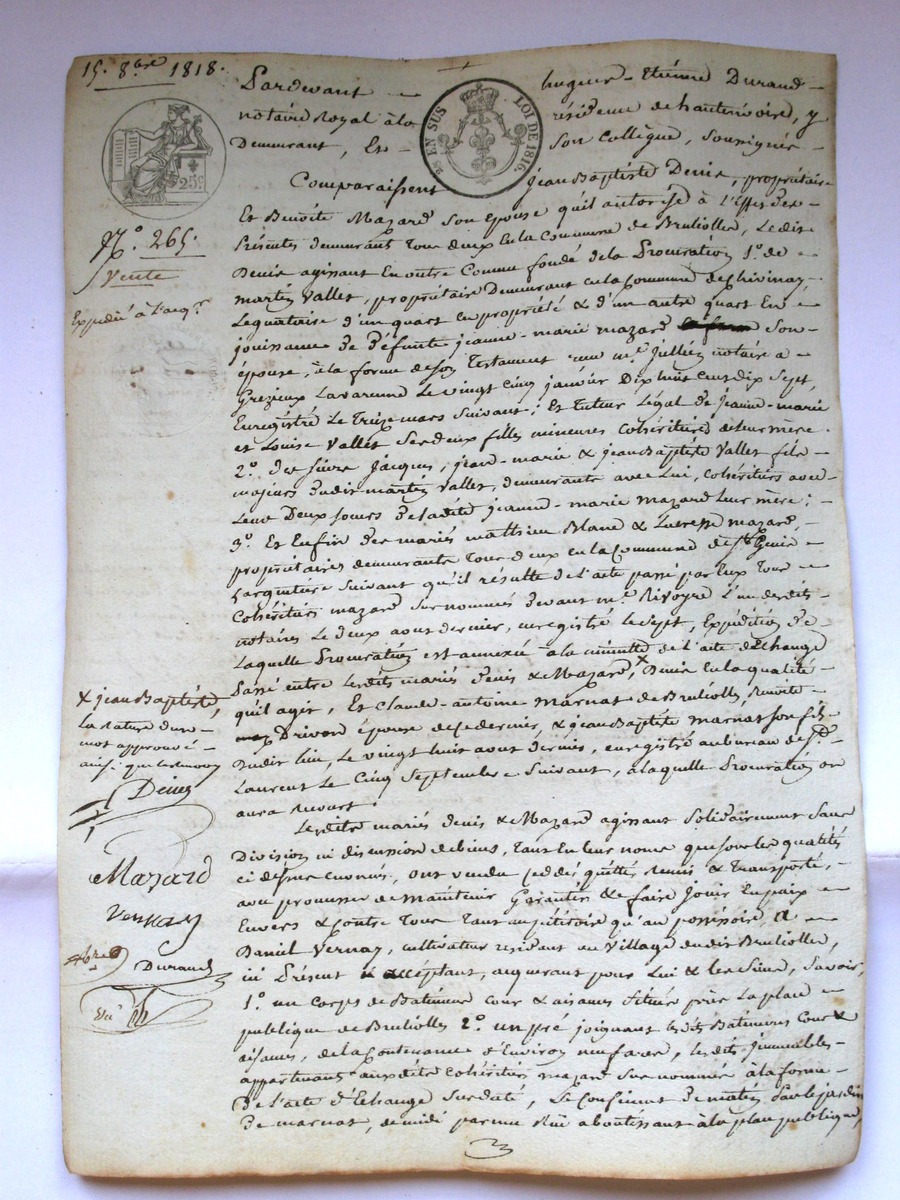 15. 8bre 1818.
Pardevant hugues-Etienne Durand
notaire Royal à la résidence de hauterivoire, y
Demeurant, Et son Collègue, Soussignés
2s EN SUS LOI DE 1816.
25c
Comparaissent JeanBaptiste Denis, propriétaire
Et Benoite Mazard son épouse qu'il autorise à l'Effet des
présentes demeurant tous deux En la Commune de Brulioles, Ledit
Denis agissant En outre Comme fondé de la Procuration 1o. de
martin Vallet, propriétaire Demeurant en la Commune de Chivinay,
Légataire d'un quart en propriété & d'un autre quart En
jouissance de Défunte jeanne-marie mazard son
épouse, à la forme de son Testament reçu me. Jullien notaire a
Grezieux Lavarenne Le vingt cinq janvier Dix huit cent dix Sept,
Enregistré Le Treize mars Suivant; Et Tuteur Légal de Jeanne-marie
et Louise Vallet Ses deux filles mineures cohéritières de leur mère.
2o. des sieurs Jacques, jean-marie & jeanBaptiste Vallet fils
majeurs dudit martin Vallet, demeurants avec Lui, Cohéritiers avec
Leurs Deux soeurs de Ladite jeanne-marie mazard Leur mère;
3o. Et Enfin des mariés mathieu Blanc & mazard,
propriétaires demeurants Tous deux en la Commune de St. Genis
Largentière Suivant qu'il résulte de l'acte passé par Eux Tous
Cohéritiers mazard Sus nommés devant me. Rivoyre L'un desdits
notaires Le deux aout dernier, enregistré le Sept, Expédition de
Laquelle Procuration est annexée à la minutte de l'acte d'Echange
Passé entre Lesdits mariés Denis & Mazard, x Denis En la qualité
qu'il agit, Et Claude-antoine Marnat de Brulioles, Benoite
Drivon épouse de ce dernier, & jeanBaptiste marnat son fils
dudit lieu, Le vingt huit aout dernier, enregistré au bureau de St.
Laurent Le Cinq Septembre Suivant, à laquelle Procuration on
aura recours.
Lesdits mariés Denis & Mazard agissant Solidairement Sans
Division ni discussion de biens, Tant En leur noms que sous les qualités
ci dessus Enonces, ont vendu cédé, quitté, Remis & Transporté,
avec promesse de maintenir Garantir & faire Jouir En paix
Envers & Contre Tous Tant au pétitoire qu'au possessoire, a
Daniel Vernay, cultivateur résident au Village dudit Brulioles,
ici Présent & acceptant, acquerant pour Lui & les Siens, Savoir,
1o. un Corps de Batiments Cour & aisances située près La place
publique de Brulioles 2o. un pré joignant lesdits Batiments Cour &
aisances, de la Contenance d'Environ neuf ares, lesdits immeubles
appartenants auxdits cohéritiers mazard sus nommés à la forme
De l'acte d'Echange Susdaté, Se Confinent De matin Par le jardin
De marnat, de midi par une Rue aboutissant à la place publique,
No. 265.
Vente
Expédié à l'acqr.
x jeanBaptiste,
La rature d'un
mot approuvé
ainsi que le renvoy
Denis
Mazard
Vernay
Durand